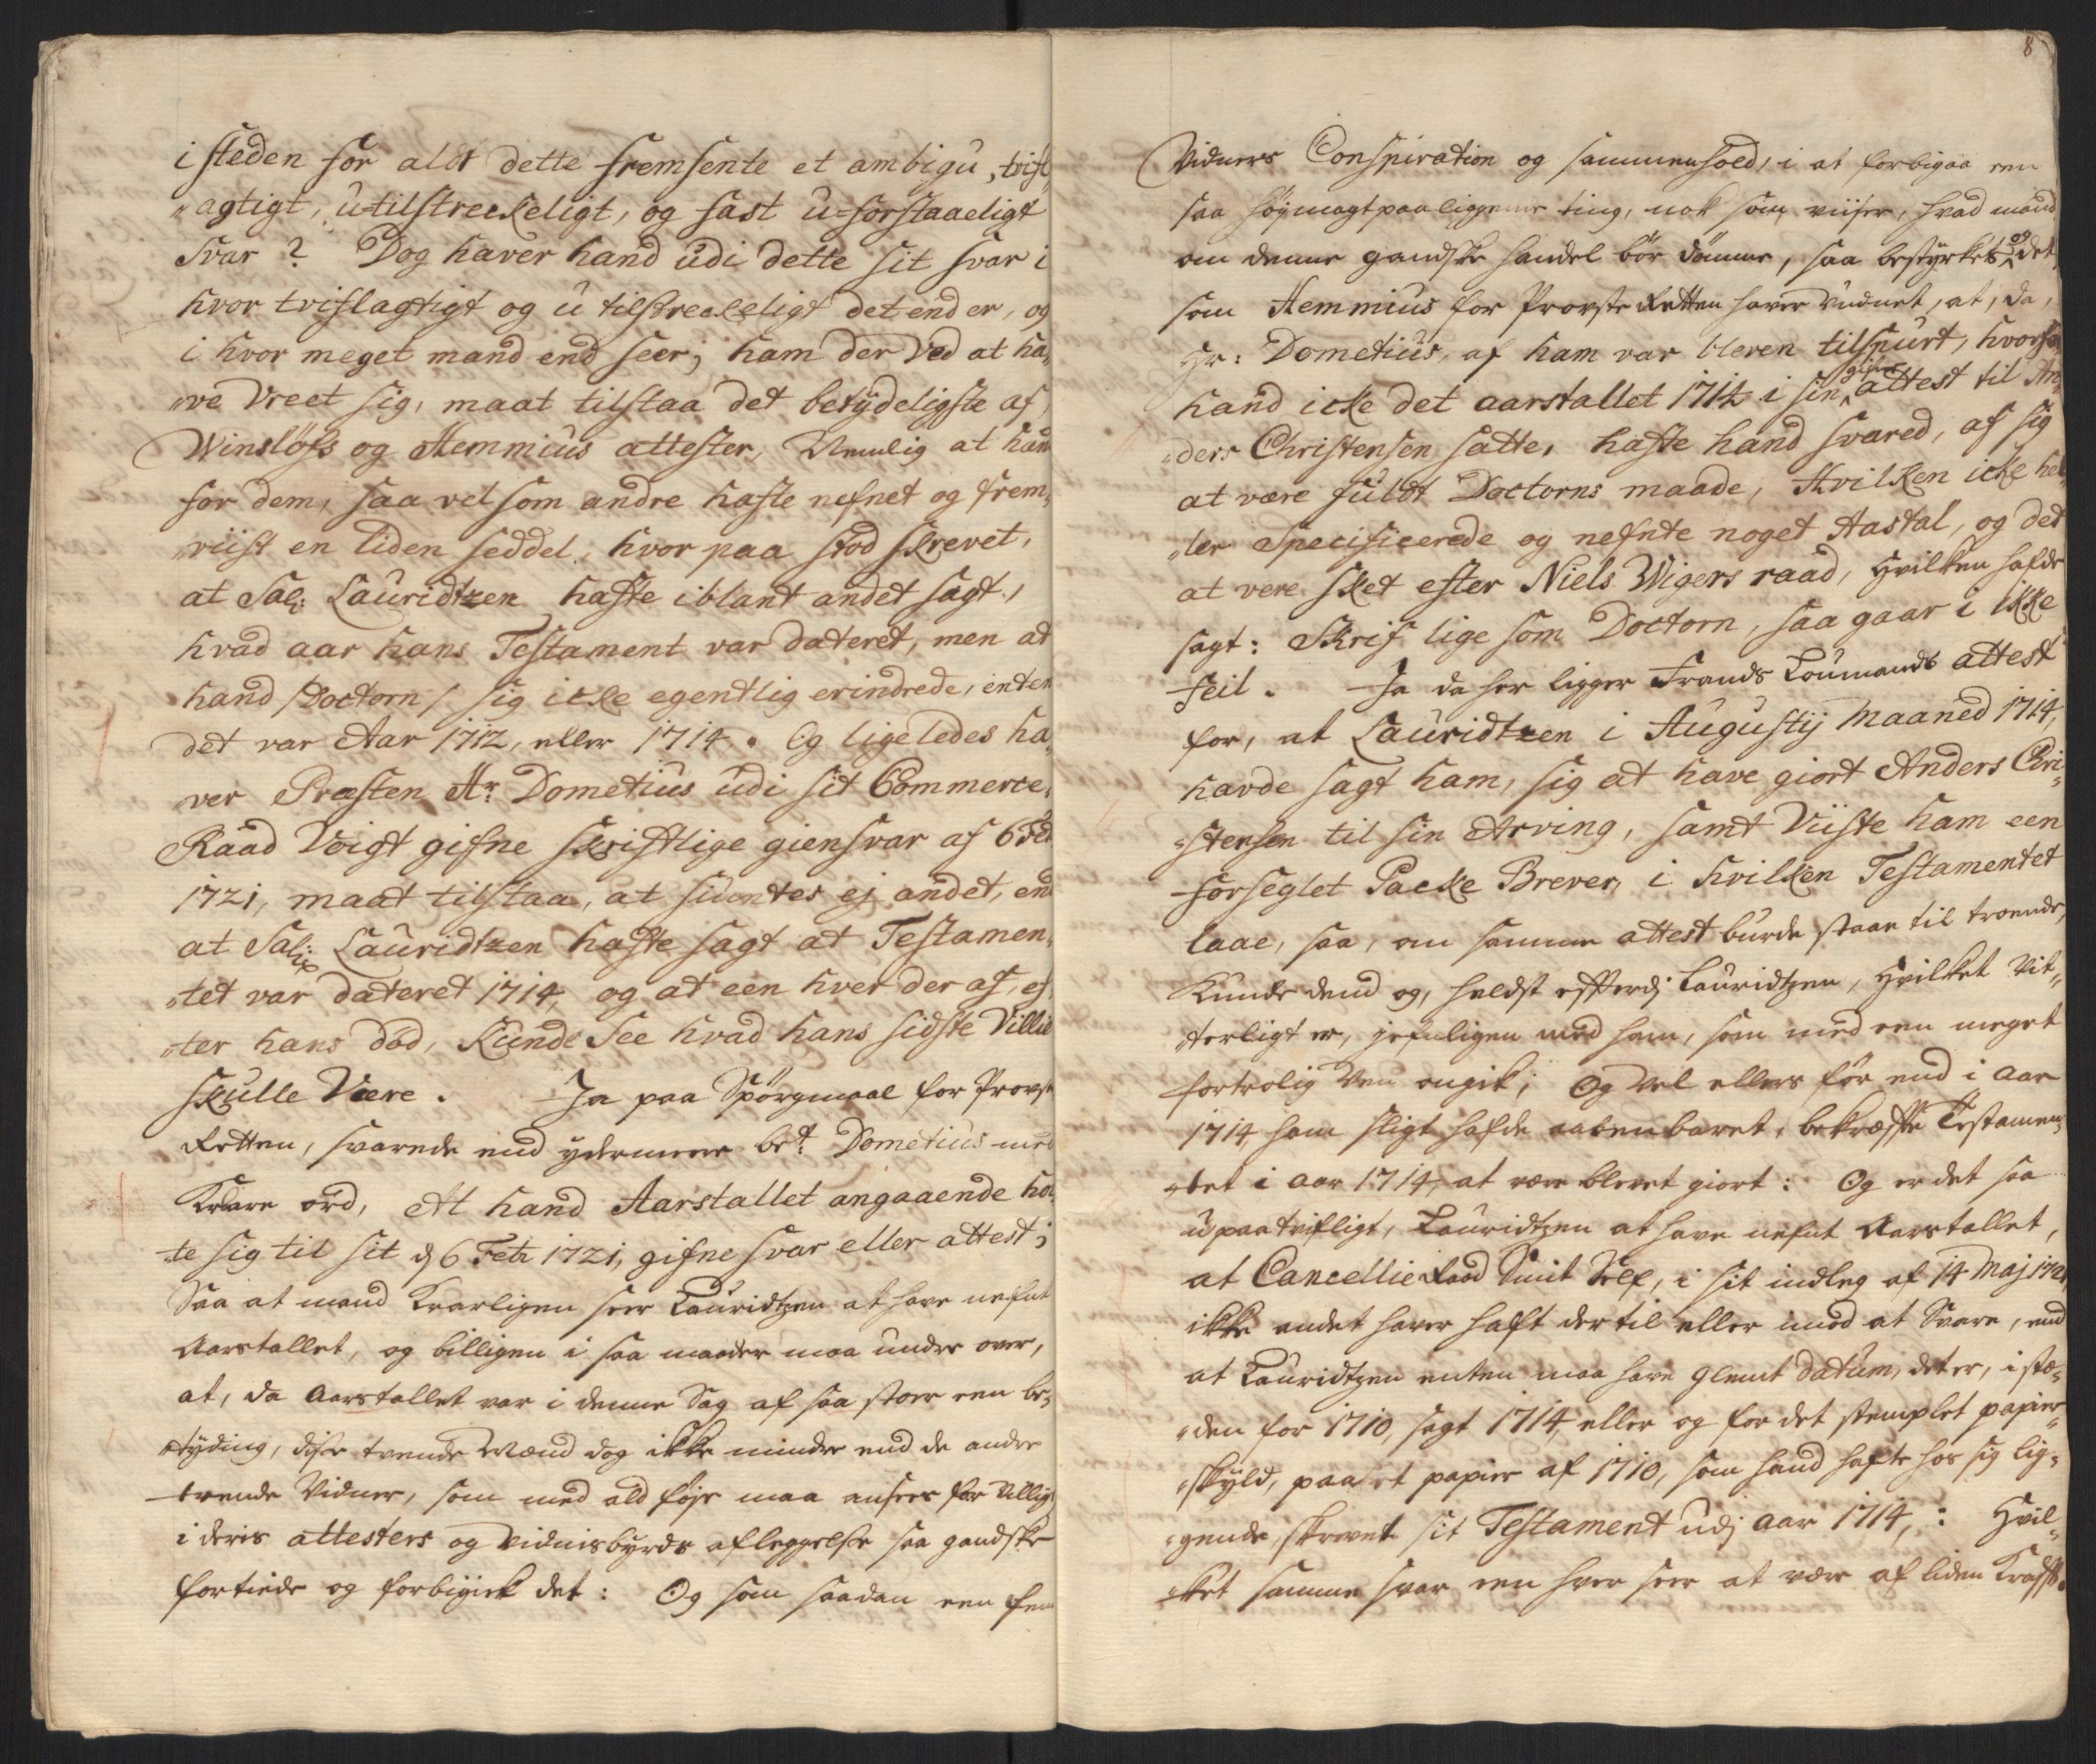 i steden for aldt dette fremsente et ambigu, tvifl„
„agtigt, u-tilstreckeligt, og fast u-forstaaeligt
Svar? Dog haver hand udi dette sit svar i
hvor tvislagtigt og u tilstreckeligt det end er, og
i hvor meget mand end seer; ham der Ved at ha„
„ve Vreet sig, maat tilstaa det betydeligste af
Winsløfs og Hemmius attester, Nemlig at hand
for dem, saa vel som andre hafte nefnet og frem„
„viist en liden seddel, hvor paa stod skrevet,
at Sal: Lauridtzen hafte iblant andet sagt,
hvad aar hans Testament var dateret, men at
hand /Doctorn/ sig icke egentlig erindrede, enten
det var Aar 1712, eller 1714. Og ligeledes ha„
ver Præsten Hr: Dometius udi sit Commerce„
Raad Voigt gifne skriftlige giensvar af 6 Feb
1721, maat tilstaa, at ej andet, end
at Sal: Lauridtzen hafte sagt at Testamen„
„tet var dateret 1714, og at een hver der af, ef„
„ter hans død, kunde See hvad hans sidste Villie
skulle Være. Ja paa Spørgmaal for Provste
Retten, svarede end ydermeere bete Dometius med
Klare ord, At hand Aarstallet angaaende hol„
te sig til sit d 6 Feb 1721, gifne svar eller attest;
Saa at mand klarligen seer Lauridtzen at have nefnt
Aarstallet, og billigen i saa maader maa undre over,
at, da Aarstallet var i denne Sag af saa stoer een be„
„tyding, disse tvende Mænd dog ikke mindre end de andre
tvende Vidner, som med ald føje maa ansees for Villige
i deris attesters og Vidnisbyrds afleggelse saa gandske
fortiede og forbigick det: Og som saadan een fem
8
Vidners Conspiration og sammenhold, i at forbigaa een
saa høymagtpaaliggende ting, nok som viiser, hvad mand
om denne gandske handel bør dømme, saa bestyrkes og det,
som Hemmius for Provste Retten haver Vidnet, at, da,
Hr: Dometius, af ham var bleven tilspurt, hvorfor
hand icke det aarstallet 1714 i sin gifne attest til An„
„ders Christensen satte, hafte hand svared, af sig
at være fuldt Doctorns maade, Hvilken icke hel„
„ler Specificerede og nefnte noget Aastal, og det
at vere sket efter Niels Wigers raad, Hvilken hafde
sagt: Skrif lige som Doctorn, saa gaar i ikke
feil. Ja da her ligger Frands Loumands attest
for, at Lauridtzen i Augustij Maaned 1714,
havde sagt ham, sig at have giort Anders Chri„
„stensen til sin Arving, samt Viiste ham een
forseglet Packe Brever, i hvilken Testamentet
laae, saa, om samme attest burde staae til troende,
Kunde dend og, heldst efterdj Lauridtzen, Hvilket Vit„
„terligt er, jefnligen med ham, som med een meget
fortrolig Ven omgik; Og Vel ellers før end i Aar
1714 ham sligt hafde aabenbaret, bekræfte Testamen„
„tet i Aar 1714, at være blevet giort: Og er det saa
upaatvifligt, Lauridtzen at have nefnt Aarstallet,
at Cancellie Raad Smit Self, i sit indleg af 14 Maj 1721
ikke andet haver haft der til eller imod at Svare, end
at Lauridtzen enten maa have glemt datum, det er, i stæ„
„den for 1710, sagt 1714, eller og for det stemplet papiers
„skyld, paa et papier af 1710, som hand hafte hos sig lig„
„gende, skrevet sit Testament udj Aar 1714,: Hvil„
„ket samme svar een hver seer at være af liden Krafft.